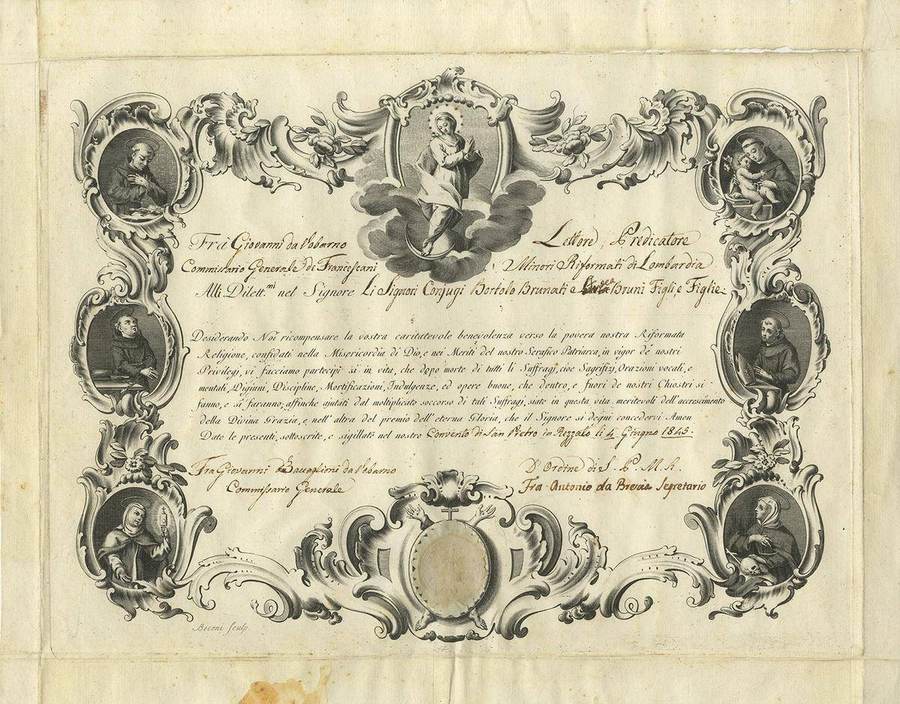 Frà Giovanni da Vobarno Lettore, Predicatore
Commissario Generale de Francescani Minori Riformati di Lombardia
Alli Dilett.mi nel Signore Li Signori Conjugi Bortolo Brunati e Bruni Figli, e Figlie
Desiderando Noi ricompensare la vostra caritatevole benevolenza verso la povera nostra Riformata
Religione, confidati nella Misericordia di Dio, e nei Meriti del nostro Serafico Patriarca, in vigor de nostri
Privilegi, vi facciamo partecipi sì in vita, che dopo morte di tutti li Suffragj, cioe Sagrifizj, Orazioni vocali, e
mentali, Digiuni, Discipline, Mortificazioni, Indulgenze, ed opere buone, che dentro, e fuori de nostri Chiostri si
fanno, e si faranno, affinche ajutati dal moltiplicato soccorso di tali Suffragj, siate in questa vita meritevoli dell'accrescimento
della Divina Grazia, e nell'altra del premio dell'eterna Gloria, che il Signore si degni concedervi Amen
Date le presenti, sottoscrite, e sigillate nel nostro Convento di San Pietro in Rezzato li 4 Giugno 1843.
Fra Giovanni da Vobarno D'Ordine di S. P. M. R.
Commissario Generale Fra Antonio da Brescia Segretario
Beceni sculp.